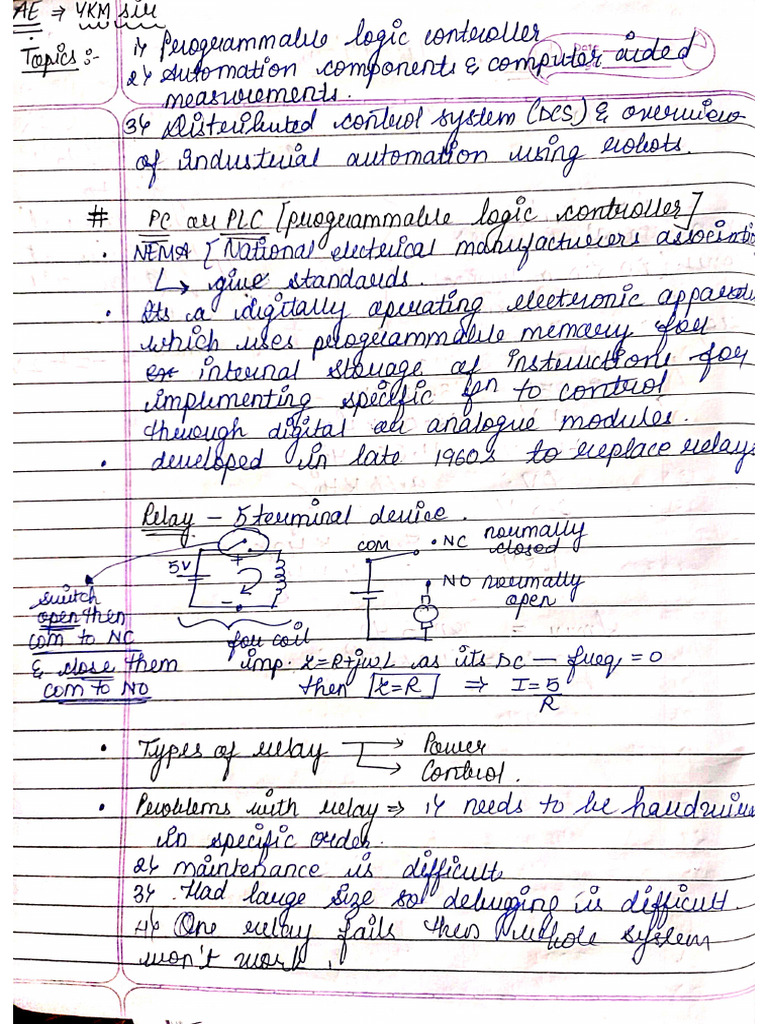 AE → YKM sir
Topics :-
1) Programmable logic controller
2) Automation components & computer aided
measurements.
3) Distributed control system (DCS) & overview
of industrial automation using robots.
# PC or PLC [programmable logic controller]
• NEMA [National electrical manufacturers associatio
↳ give standards.
• Its a digitally operating electronic apparatu
which uses programmable memory for
internal storage of instructions for
implementing specific fn to control
through digital or analogue modules.
• developed in late 1960s to replace relays
Relay - 5 terminal device.
COM • NC normally
closed
5V
+
-
NO normally
open
switch
open then
COM to NC
& close them
COM to NO
for coil
imp. Z=R+jωL as its DC - freq = 0
then Z=R ⇒ I = 5
R
• Types of relay → Power
→ Control.
• Problems with relay ⇒ 1) needs to be hardwire
in specific order.
2) maintenance is difficult
3) Had large size so debugging is difficult.
4) One relay fails then whole system
won't work.